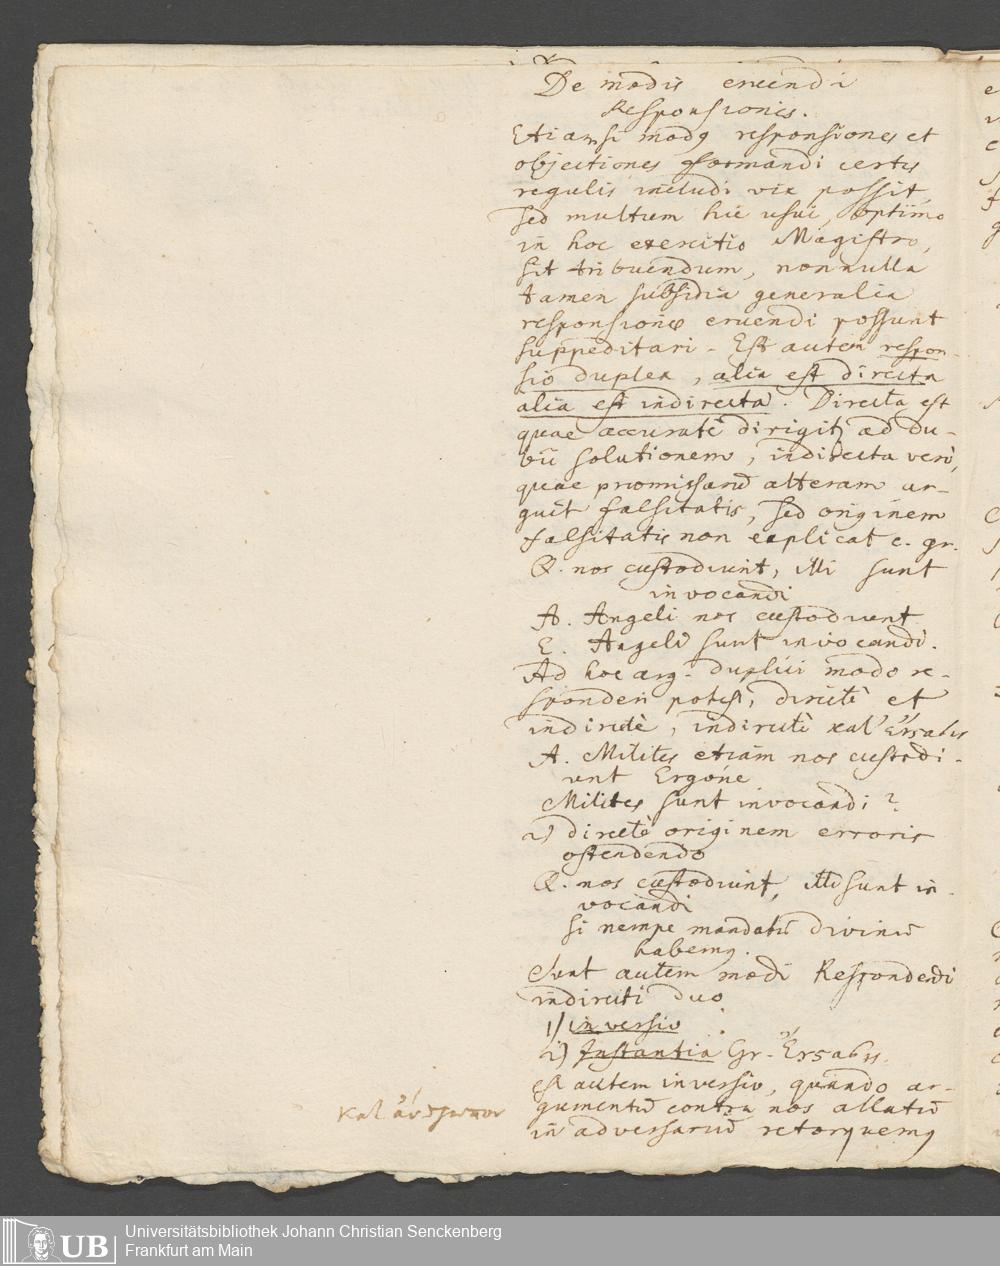 De modis eruendi
Responsiones.
Etiamsi modq responsiones et
objectiones formandi certis
regulis includi vix possit,
sed multum hic usui, optimo
in hoc exercitio Magistro,
sit tribuendum, nonnulla
tamen subsidia generalia
responsiones eruendi possunt
suppeditari. Est autem respon-
sio duplex, alia est directa
alia est indirecta. Directa est
quae accuratè dirigit ad du-
bii solutionem, indirecta vero,
quae praemissarū alteram ar-
guit falsitatis, sed originem
falsitatis non explicat e. gr.
Q. nos custodiunt, illi sunt
invocandi
A. Angeli nos custodiunt
E. Angeli sunt invocandi.
Ad hoc arg. duplici modo re-
sponderi potest, directè et
indirectè, indirectè
A. Milites etiam nos custodi-
unt Ergóne
Milites sunt invocandi?
2) directè originem erroris
ostendendo
Q. nos custodiunt, illi sunt in-
vocandi
si nempe mandatū divinū
habemq.
Sunt autem modi Respondendi
indirecti duo
1) inversio
2) Instantia Gr.
est autem inversio, quando ar-
gumentū contra nos allatū
in adversariū retorquemq
κατ' ἄνθρωπον
Universitätsbibliothek Johann Christian Senckenberg
Frankfurt am Main
UB